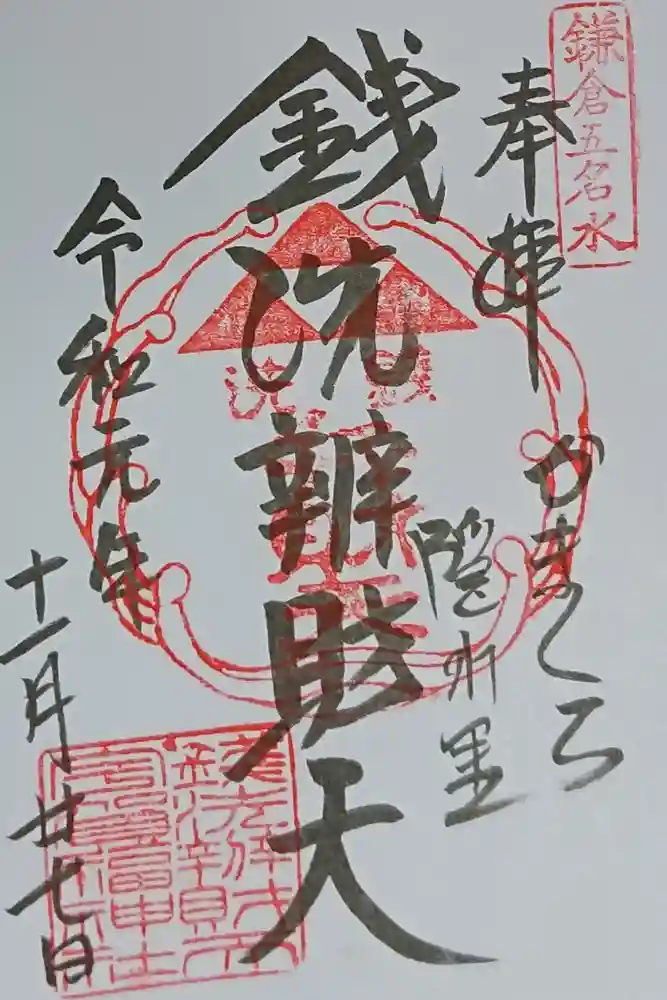 鎌倉五名水
奉拝
かまくら
隠れ里
銭洗辨財天
令和元年
十一月廿七日